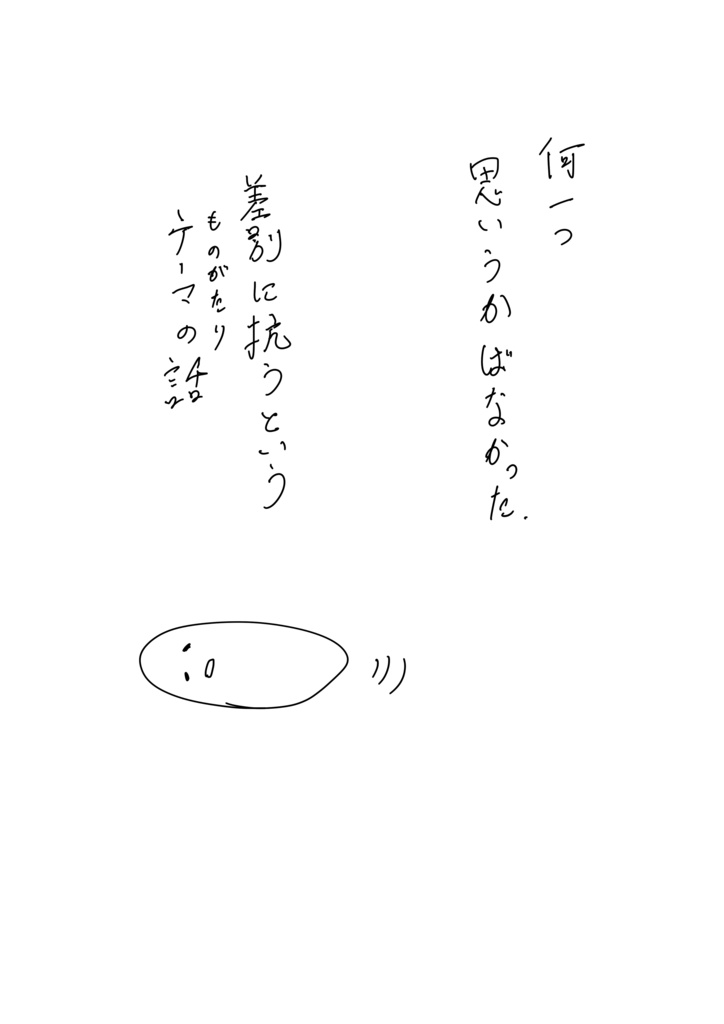 何一つ
思いうかばなかった.
差別に抗うという
ものがたり
テーマの話